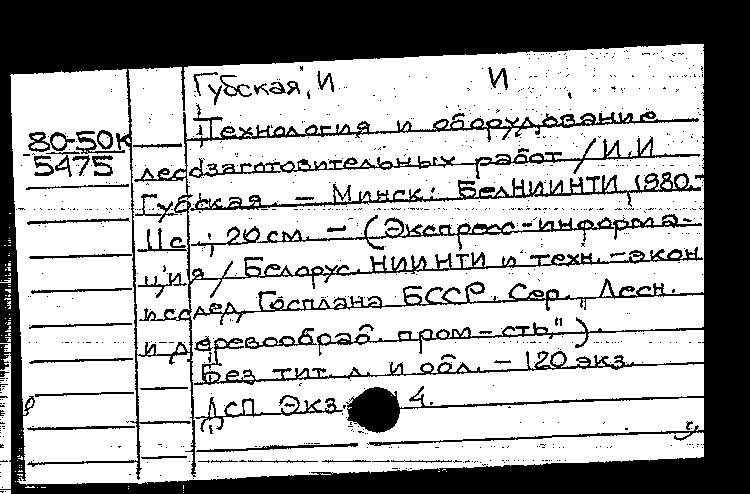 Губская, И И
Технология и оборудование
80-50к
5475
лесозаготовительных работ / И.И
Губская. – Минск: БелНИИНТИ, 1980.-
11с.; 20см. – (Экспресс-информа-
ция / Белорус. НИИНТИ и техн.-экон
исслед. Госплана БССР. Сер., Лесн.
и деревообраб. пром-сть,").
Без тит. л. и обл. – 120 экз.
ДСП. Экз 4.